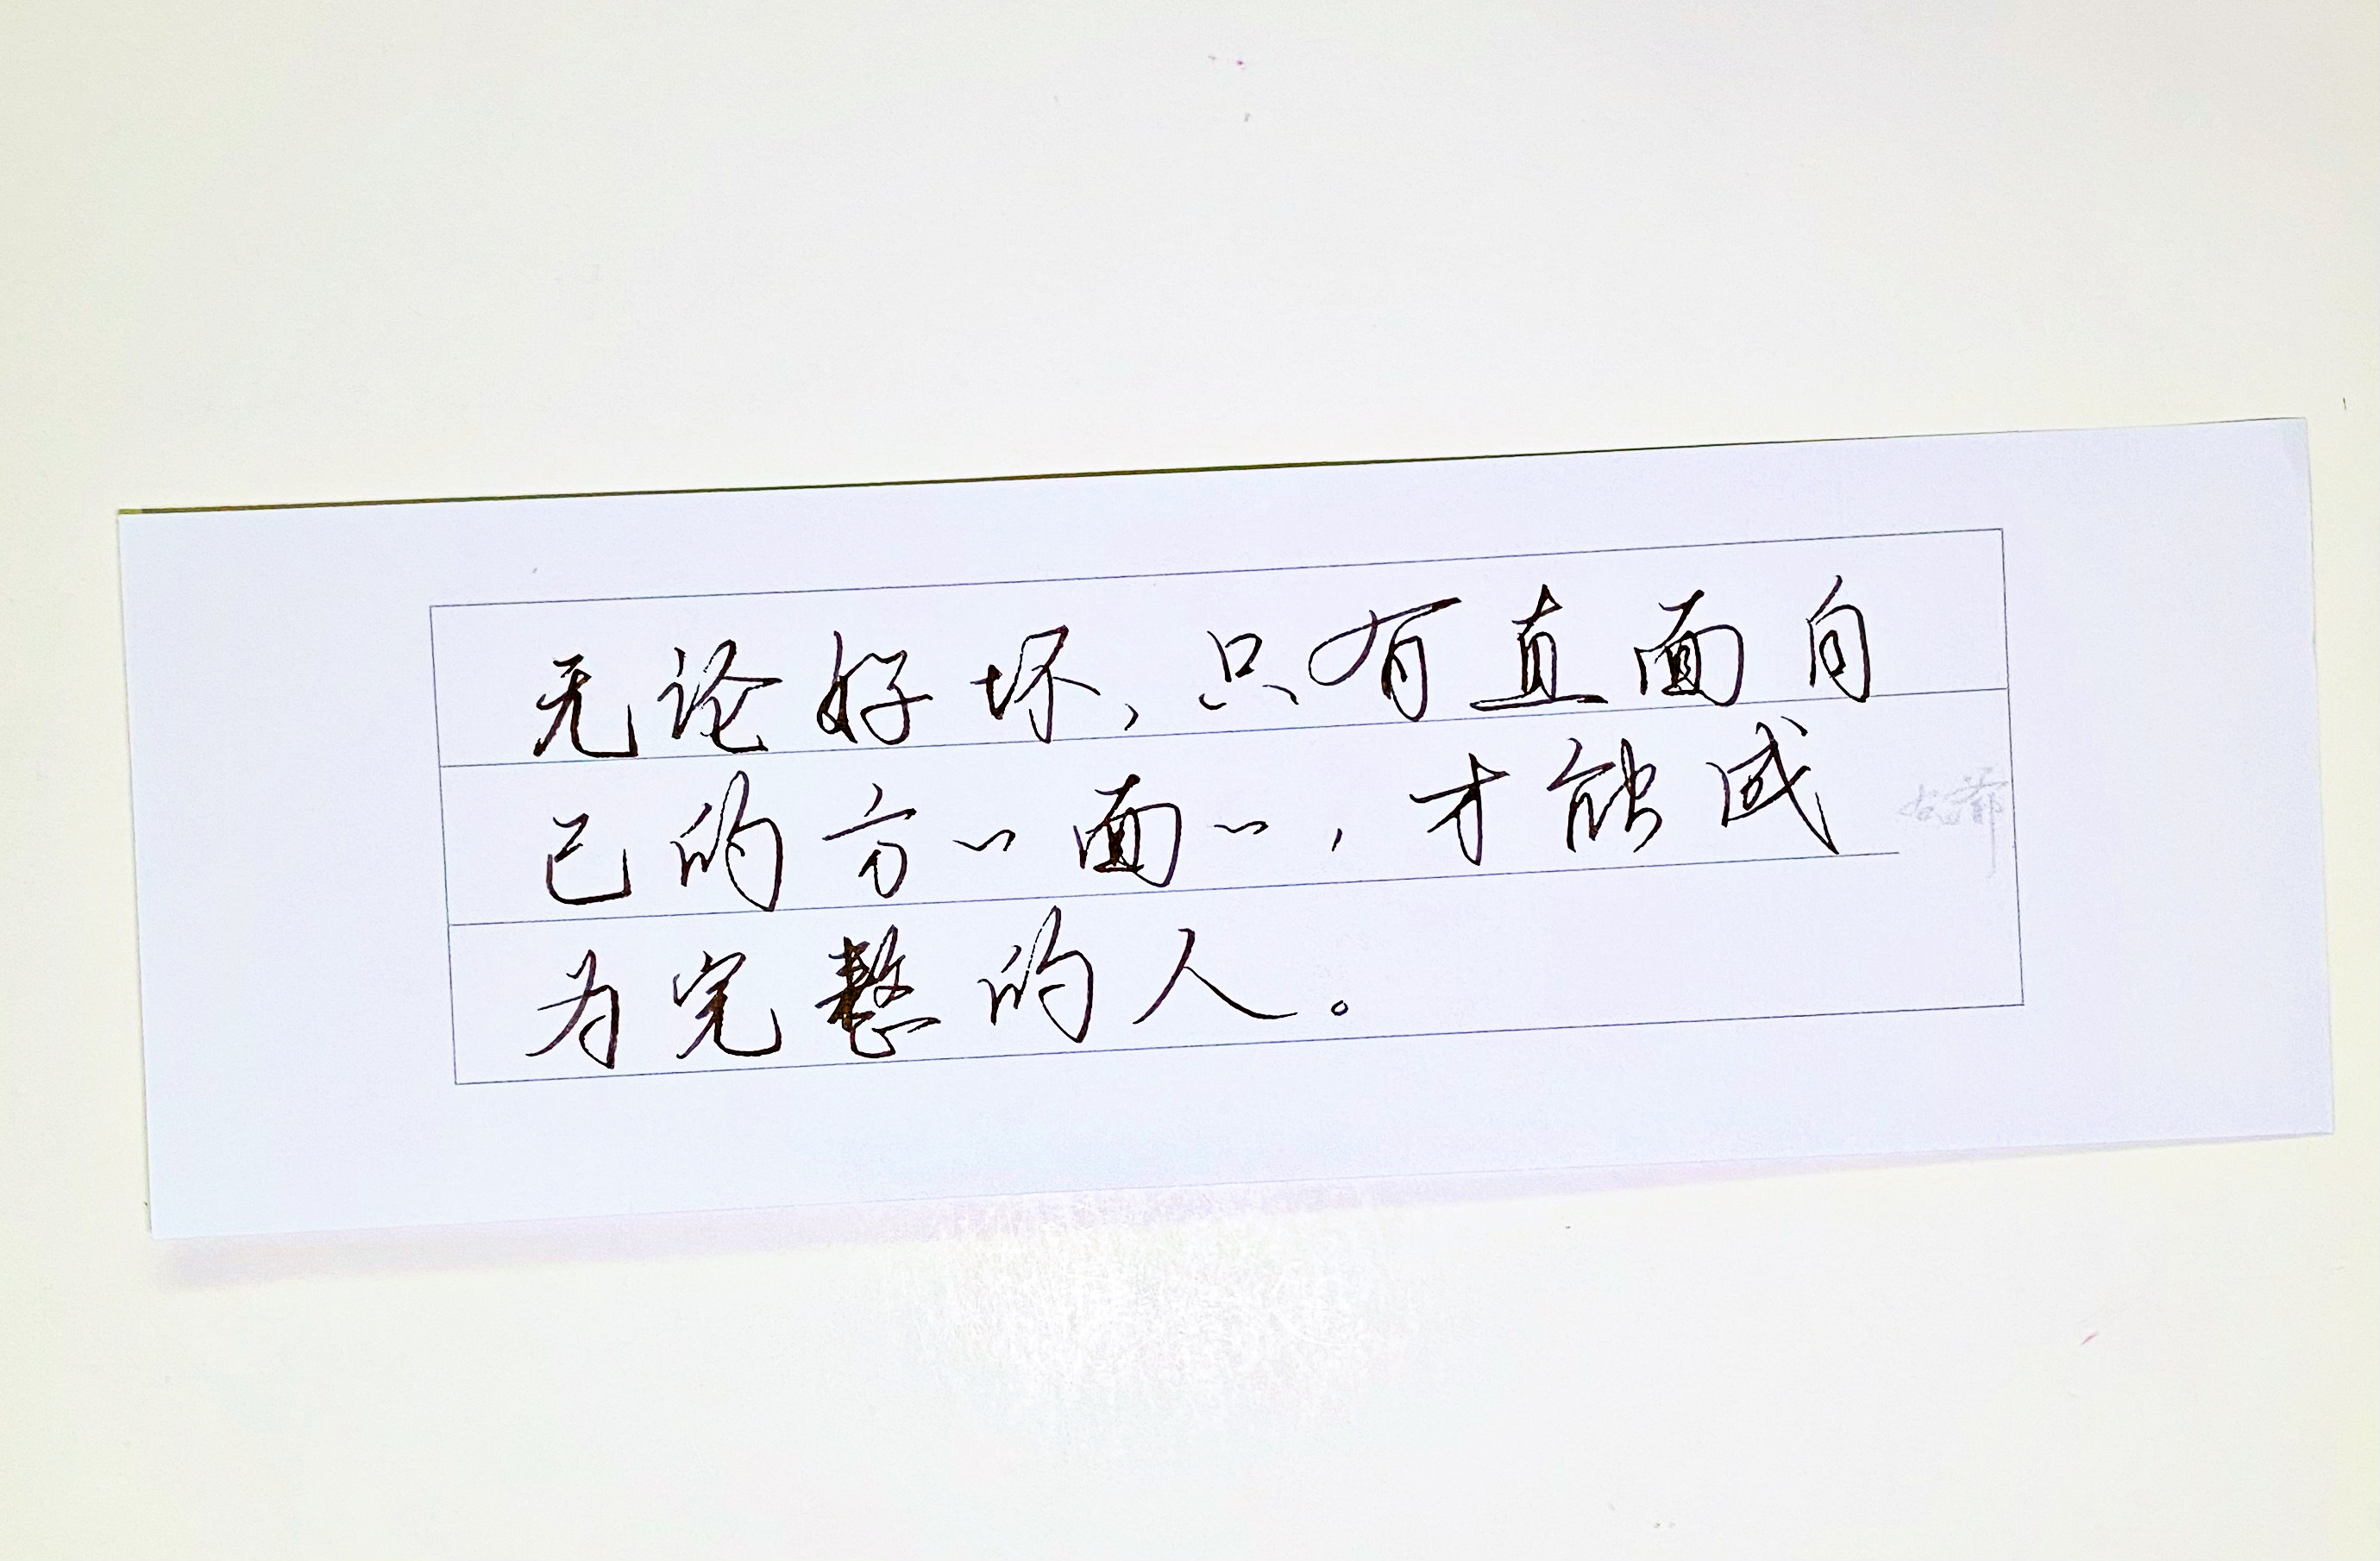 无论好坏，只有直面自
己的方〻面〻，才能成
为完整的人。